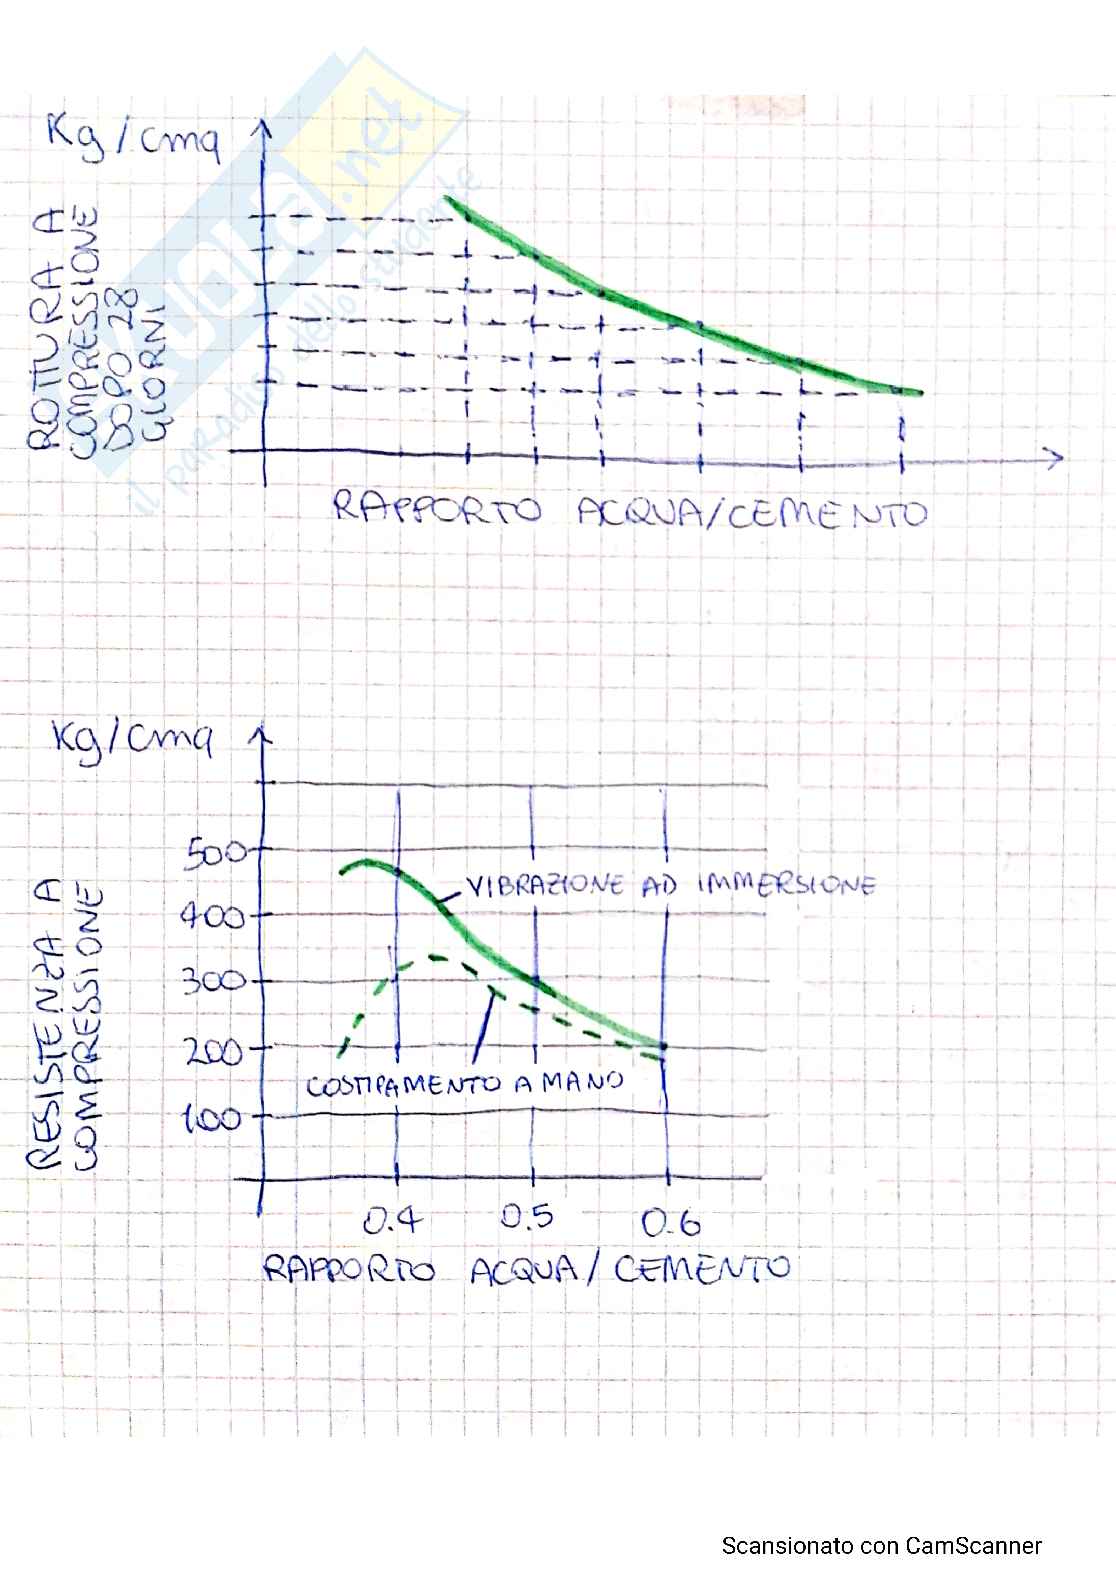 Kg/cmq
ROTTURA A
COMPRESSIONE
DOPO 28
GIORNI
RAPPORTO ACQUA/CEMENTO
SKUOLA.net
il paradiso dello studente
Kg/cmq
500
400
300
200
100
RESISTENZA A
COMPRESSIONE
VIBRAZIONE AD IMMERSIONE
COSTIPAMENTO A MANO
0.4 0.5 0.6
RAPPORTO ACQUA/CEMENTO
Scansionato con CamScanner